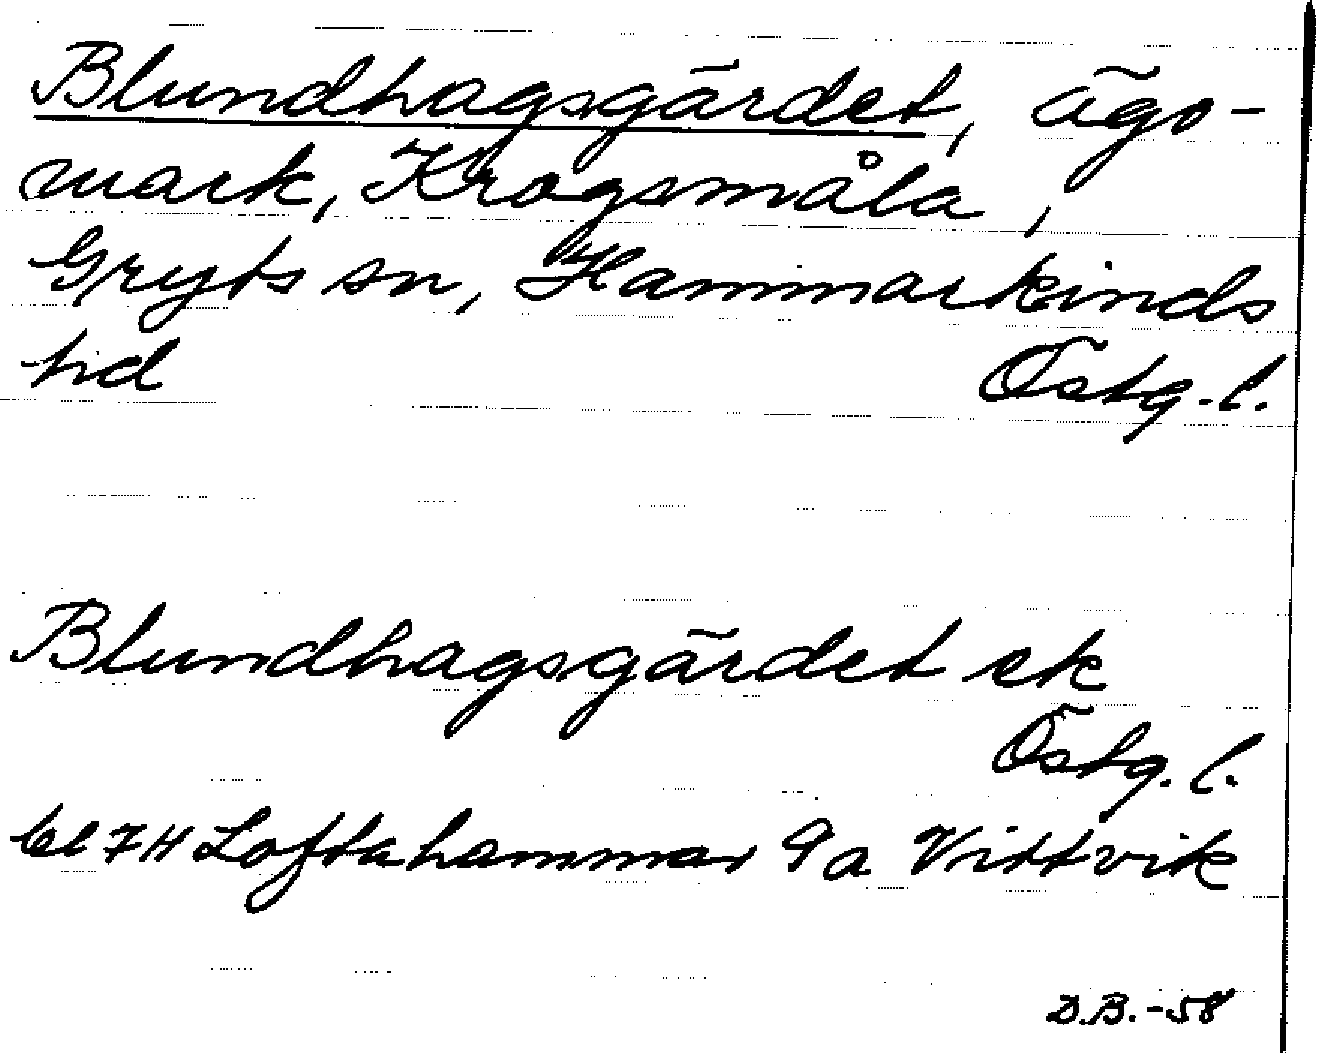 Blundhagsgärdet, ägo-
mark, Krogsmåla,
Gryts sn, Hammarkinds
hd Östg. l.
Blundhagsgärdet ek
Östg. l.
bl 7H Loftahammar 9a Vittvik
D.B.-58